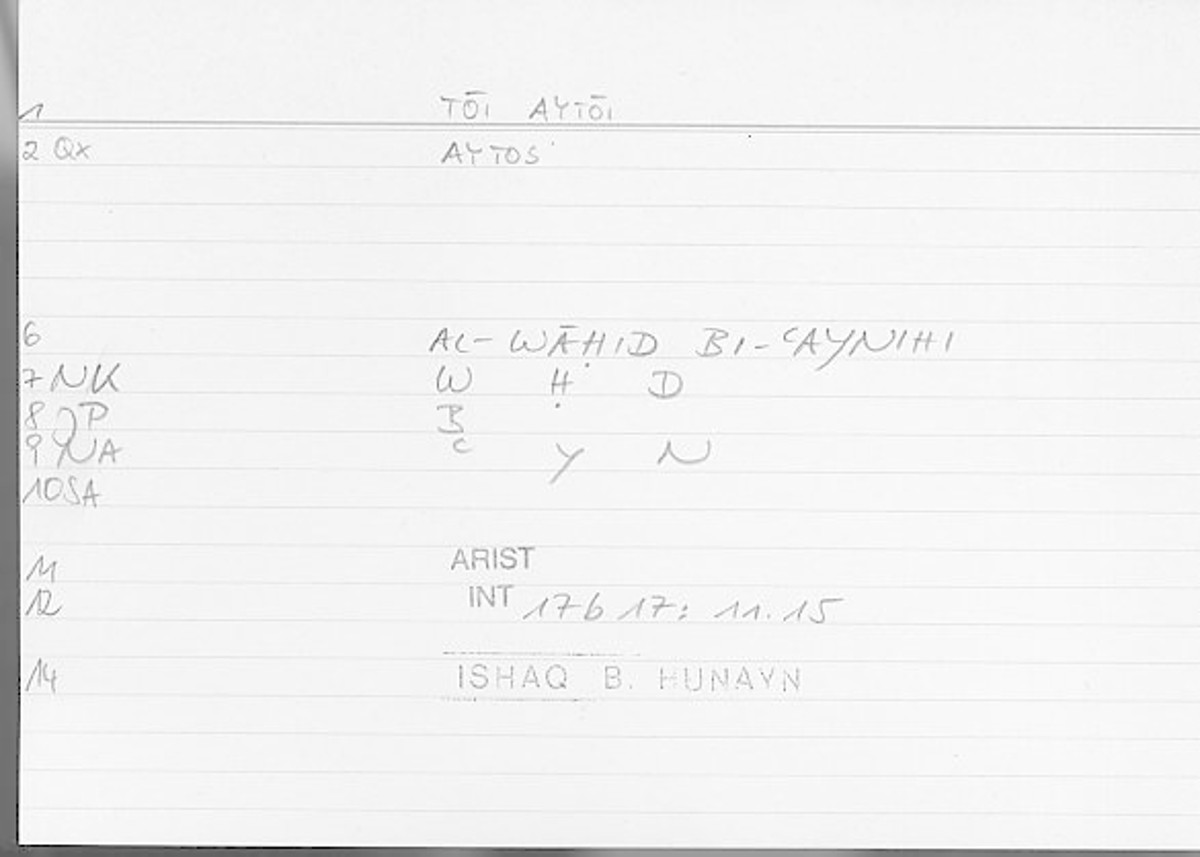 1 TŌI AYTŌI
2 QX AYTOS
6 AL-WĀḤID BI-ʿAYNIHI
7 NK W Ḥ D
8 P B
9 NA ʿ Y N
10 SA
11 ARIST
12 INT 17b 17: 11.15
14 ISHAQ B. HUNAYN